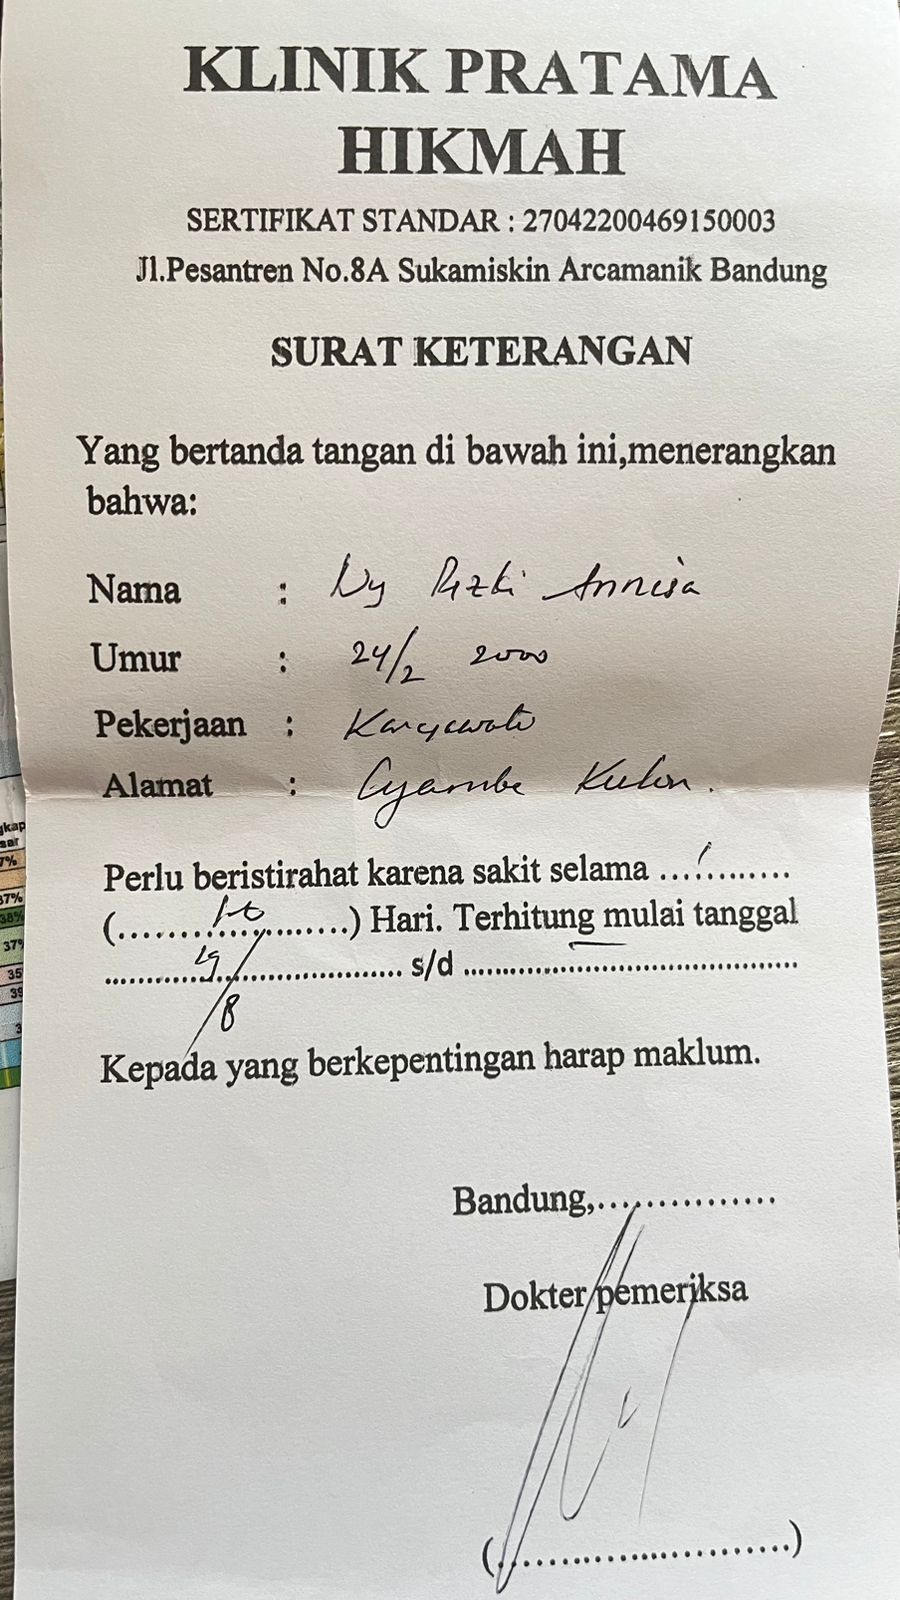 KLINIK PRATAMA
HIKMAH
SERTIFIKAT STANDAR : 27042200469150003
Jl.Pesantren No.8A Sukamiskin Arcamanik Bandung
SURAT KETERANGAN
Yang bertanda tangan di bawah ini,menerangkan
bahwa:
Nama : Ny Rizki Annisa
Umur : 24/2 2000
Pekerjaan : Karyawati
Alamat : Kulon.
Perlu beristirahat karena sakit selama ...1.........
(....................) Hari. Terhitung mulai tanggal
19/8 s/d ..........................................
Kepada yang berkepentingan harap maklum.
Bandung,................
Dokter pemeriksa
(..........................)
gkap
sar
7%
37%
38%
37%
35
39
3